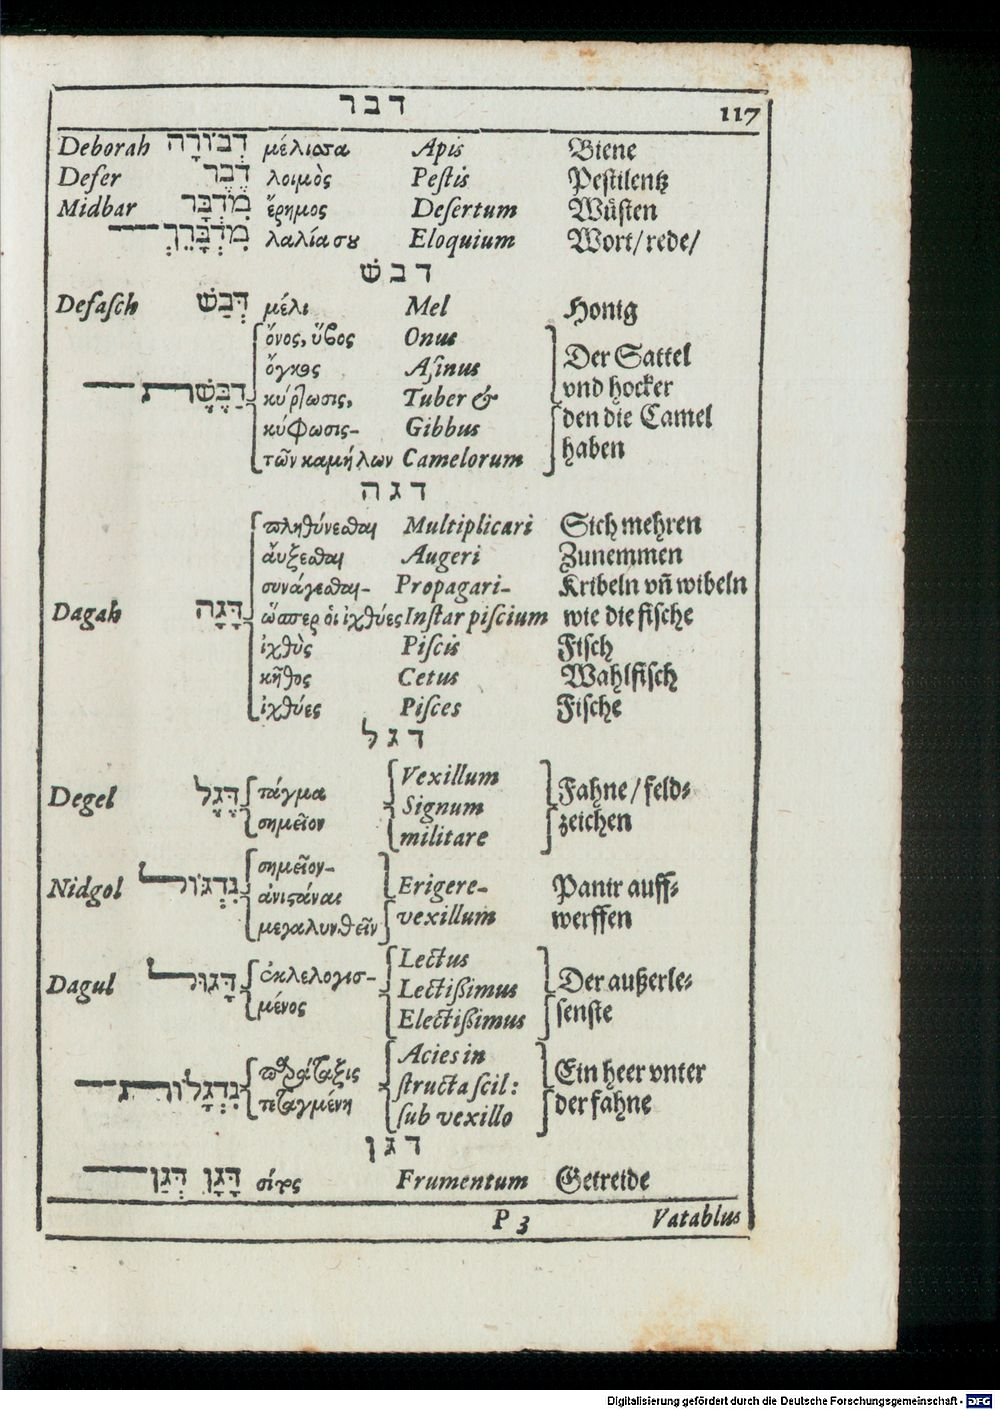 דבר 117
Deborah דְּבוֹרָה μέλισσα Apis Biene
Deſer דֶּבֶר λοιμὸς Peſtis Peſtilentz
Midbar מִדְבָּר ἔρημος Deſertum Wüſten
מִדְבָּרֵךְ λαλία σȣ Eloquium Wort/ rede/
דבש
Deſaſch דְּבַשׁ μέλι Mel Honig
ὄνος, ὕβος Onus
ὄγκος Aſinus Der Sattel
דַבֶּשֶׁת κύρτωσις, Tuber & vnd hocker
κύφωσις- Gibbus den die Camel
τῶν καμήλων Camelorum haben
דגה
πληθύνεσθαι Multiplicari Sich mehren
ἄυξεσθαι Augeri Zunemmen
συνάγεσθαι- Propagari- Kribeln vñ wibeln
Dagah דָּגָה ὥσπερ ὁι ἰχθύες Inſtar piſcium wie die fiſche
ἰχθὺς Piſcis Fiſch
κῆθος Cetus Wahlfiſch
ἰχθύες Piſces Fiſche
דגל
Degel דֶּגֶל τάγμα Vexillum Fahne/ feld⸗
σημεῖον Signum zeichen
militare
σημεῖον-
Nidgol נִדְגּוֹל ἀνιστάναι Erigere- Panir auff⸗
μεγαλυνθεῖν vexillum werffen
Dagul דָּגוּל ἐκλελογισ- Lectus Der außerle⸗
μένος Lectißimus ſenſte
Electißimus
παράταξις Acies in Ein heer vnter
נִדְגָּלוֹת τεταγμένη ſtructa ſcil: der fahne
ſub vexillo
דגן
דָּגָן דְּגַן σίτος Frumentum Getreide
P 3 Vatablus
Digitalisierung gefördert durch die Deutsche Forschungsgemeinschaft - DFG